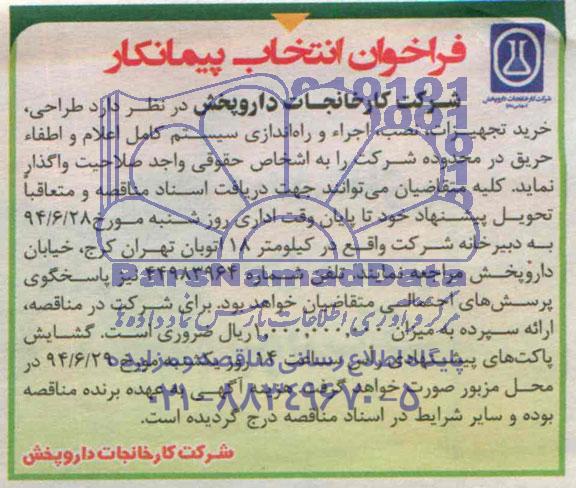 فراخوان انتخاب پیمانکار
شرکت کارخانجات داروپخش
شرکت کارخانجات داروپخش در نظر دارد طراحی،
خرید تجهیزات، نصب، اجراء و راه‌اندازی سیستم کامل اعلام و اطفاء
حریق در محدوده شرکت را به اشخاص حقوقی واجد صلاحیت واگذار
نماید. کلیه متقاضیان می‌توانند جهت دریافت اسناد مناقصه و متعاقباً
تحویل پیشنهاد خود تا پایان وقت اداری روز شنبه مورخ ۹۴/۶/۲۸
به دبیرخانه شرکت واقع در کیلومتر ۱۸ اتوبان تهران کرج، خیابان
داروپخش مراجعه نمایند. تلفن شماره ۴۴۹۸۳۹۶۴ نیز پاسخگوی
پرسش‌های احتمالی متقاضیان خواهد بود. برای شرکت در مناقصه،
ارائه سپرده به میزان ریال ضروری است. گشایش
پاکت‌های پیشنهادی رأس ساعت ۱۴ روز یکشنبه مورخ ۹۴/۶/۲۹ در
محل مزبور صورت خواهد گرفت. هزینه آگهی به عهده برنده مناقصه
بوده و سایر شرایط در اسناد مناقصه درج گردیده است.
شرکت کارخانجات داروپخش
ParsNamadData
مرکز فرآوری اطلاعات پارس نماد داده‌ها
پایگاه اطلاع رسانی مناقصه و مزایده
۰۲۱-۸۸۳۴۹۶۷۰-۵